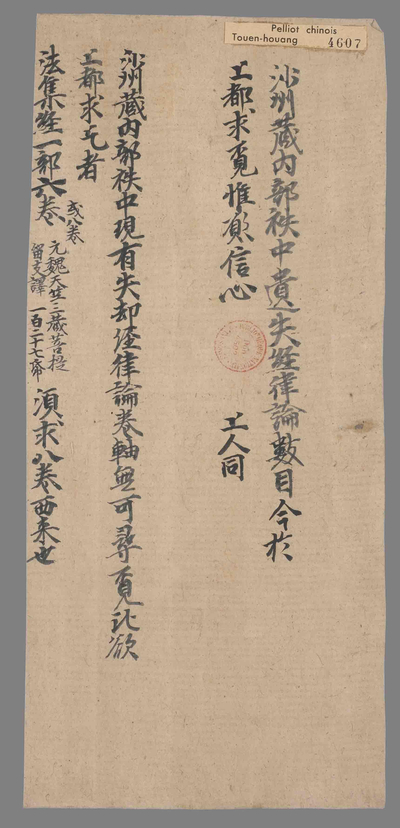 Pelliot chinois
Touen-houang 4607
沙州藏内部袟中遺失經律論數目今於
上都求覓惟願信心 上人同
沙州藏内部袟中現有失却經律論卷軸無可尋覓比欲
上都求乞者
法集經一部六卷 或八卷
元魏天竺三藏菩提
留支譯 一百二十七帋
須求八卷西来也